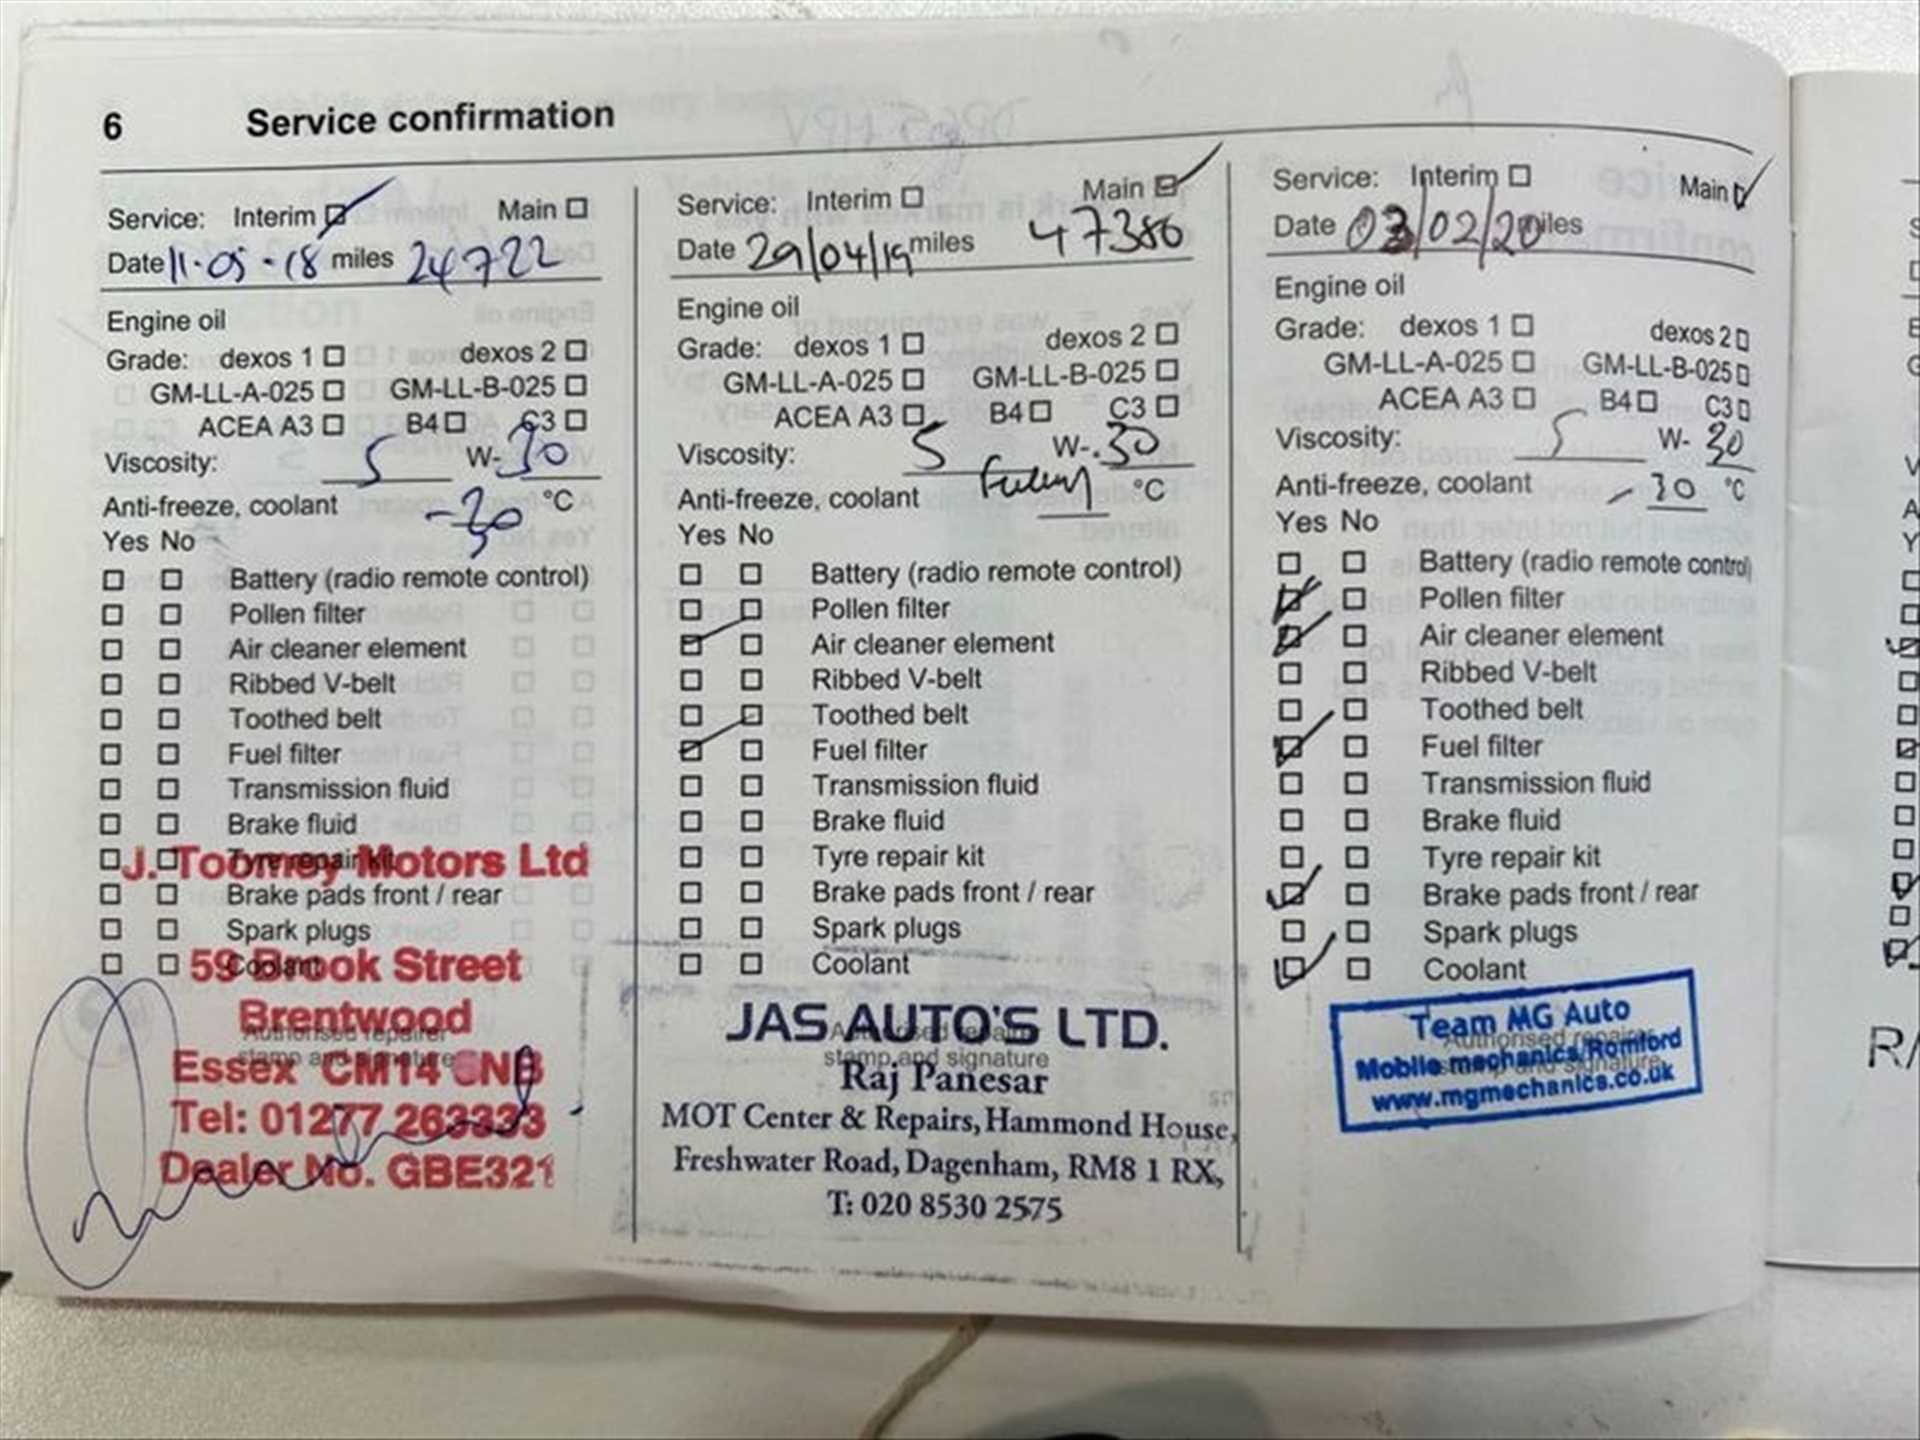 6 Service confirmation
Service: Interim Main
Date 11-05-18 miles 24722
Engine oil
Grade: dexos 1 dexos 2
GM-LL-A-025 GM-LL-B-025
ACEA A3 B4 C3
Viscosity: 5 W-30
Anti-freeze, coolant -30 °C
Yes No
Battery (radio remote control)
Pollen filter
Air cleaner element
Ribbed V-belt
Toothed belt
Fuel filter
Transmission fluid
Brake fluid
Tyre repair kit
J. Toomey Motors Ltd
Brake pads front / rear
Spark plugs
Coolant
59 Brook Street
Brentwood
Authorised repairer
stamp and signature
Essex CM14
Tel: 01277 263333
Dealer No. GBE321
Service: Interim Main
Date 29/04/19 miles 47386
Engine oil
Grade: dexos 1 dexos 2
GM-LL-A-025 GM-LL-B-025
ACEA A3 B4 C3
Viscosity: 5 W-30
Anti-freeze, coolant °C
Yes No
Battery (radio remote control)
Pollen filter
Air cleaner element
Ribbed V-belt
Toothed belt
Fuel filter
Transmission fluid
Brake fluid
Tyre repair kit
Brake pads front / rear
Spark plugs
Coolant
JAS AUTO'S LTD.
Authorised repairer
stamp and signature
Raj Panesar
MOT Center & Repairs, Hammond House,
Freshwater Road, Dagenham, RM8 1 RX,
T: 020 8530 2575
Service: Interim Main
Date 03/02/20 miles
Engine oil
Grade: dexos 1 dexos 2
GM-LL-A-025 GM-LL-B-025
ACEA A3 B4 C3
Viscosity: 5 W-30
Anti-freeze, coolant -30 °C
Yes No
Battery (radio remote control)
Pollen filter
Air cleaner element
Ribbed V-belt
Toothed belt
Fuel filter
Transmission fluid
Brake fluid
Tyre repair kit
Brake pads front / rear
Spark plugs
Coolant
Team MG Auto
Authorised repairer
Mobile mechanics/Romford
stamp and signature
www.mgmechanics.co.uk